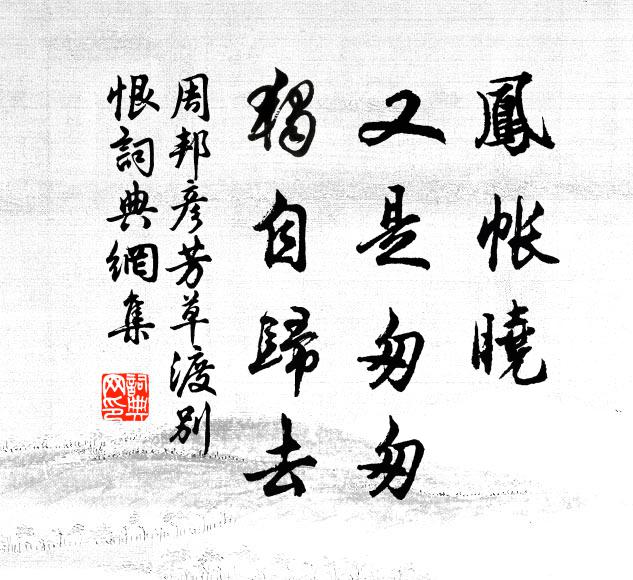 鳳帐曉
又是匆匆
獨自歸去
周邦彥芳草渡別
恨詞典網集
詞典
网印